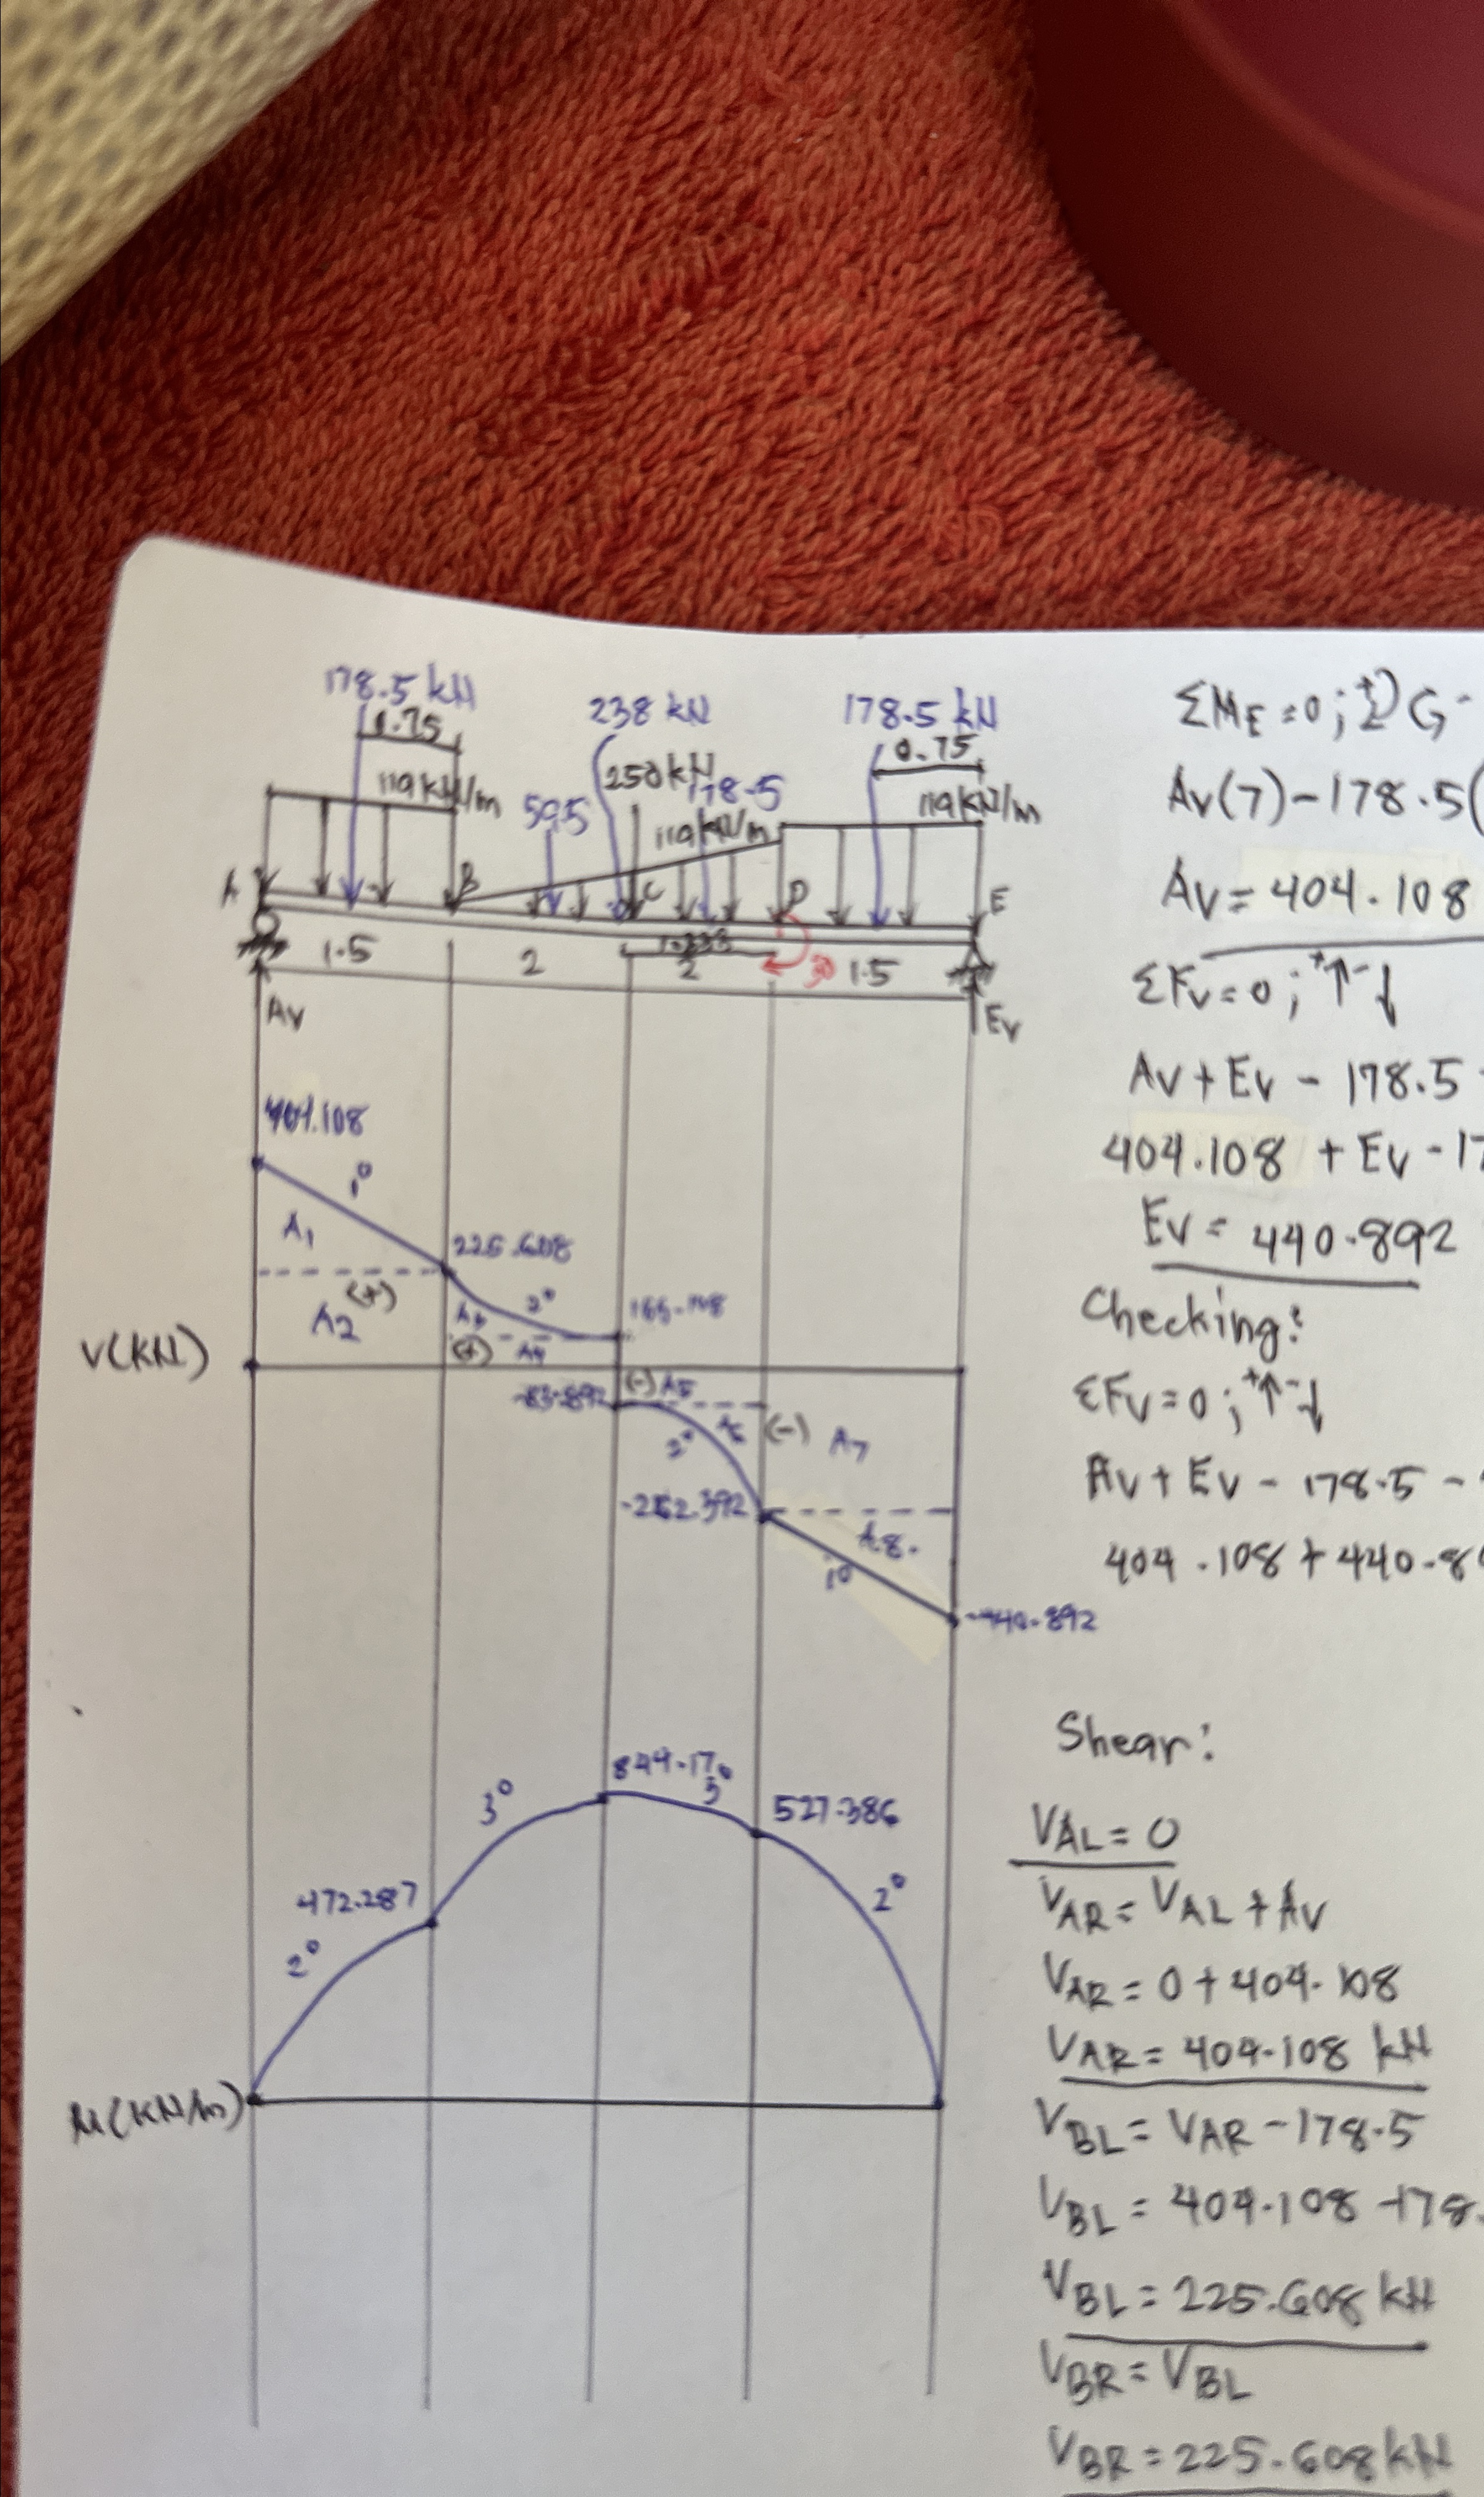 178.5 kN
0.75
119 kN/m
59.5
238 kN
250 kN
178.5
119 kN/m
178.5 kN
0.75
119 kN/m
A
B
C
D
E
1.5
2
1.333
2
1.5
Av
Ev
404.108
1°
A1
225.608
A2
(+)
2°
(+)
A4
V(KN)
(-)
A5
-83.892
2°
A6
(-)
A7
-262.392
A8
1°
-440.892
849.17
3°
3°
527.386
472.287
2°
2°
M(KN/m)
ΣME = 0; +
Av(7) - 178.5(
Av = 404.108
ΣFv = 0; +↑-↓
Av + Ev - 178.5 -
404.108 + Ev - 17
Ev = 440.892
Checking:
ΣFv = 0; +↑-↓
Av + Ev - 178.5 -
404.108 + 440.89
Shear:
VAL = 0
VAR = VAL + Av
VAR = 0 + 404.108
VAR = 404.108 kN
VBL = VAR - 178.5
VBL = 404.108 - 178.
VBL = 225.608 kN
VBR = VBL
VBR = 225.608 kN